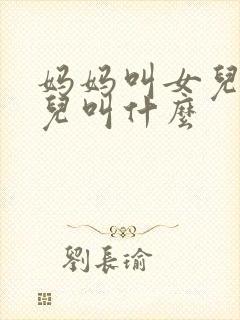 妈妈叫女兒
兒叫什麼
劉長瑜